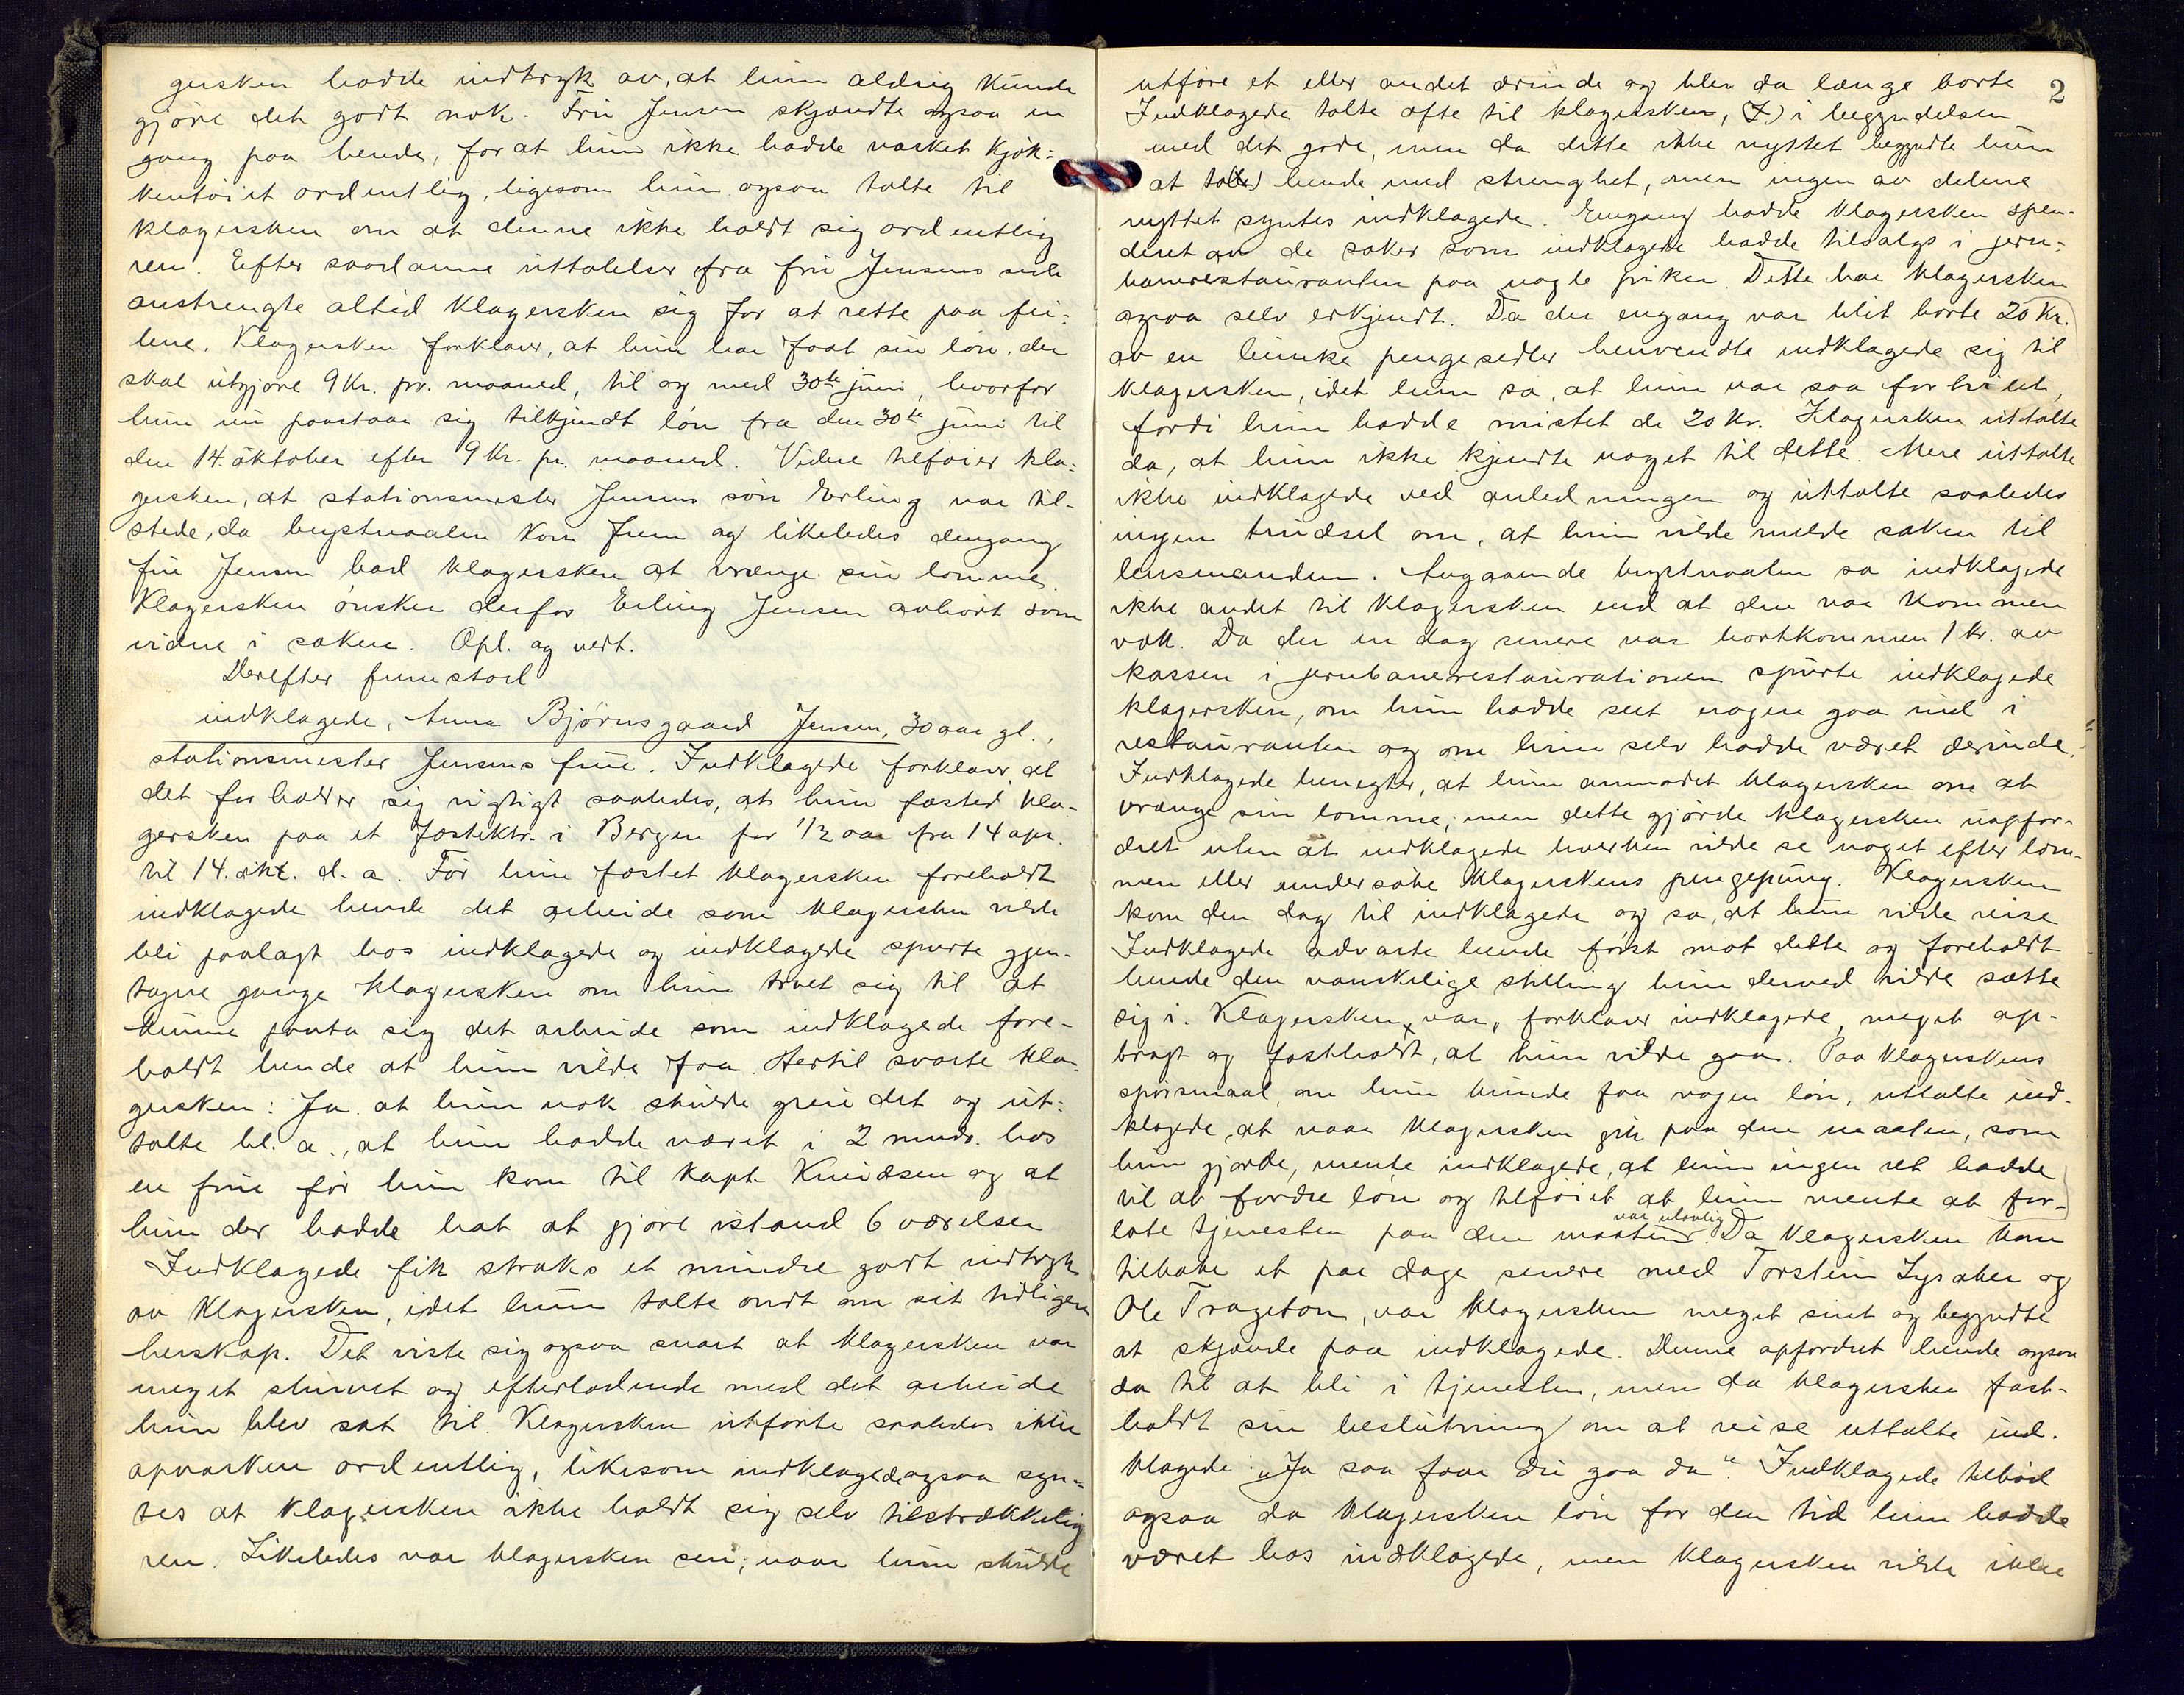 gersken hadde indtryk av, at hun aldrig kunde
gjøre det godt nok. Fru Jensen skjændte ogsaa en
gang paa hende, for at hun ikke hadde vasket kjøk-
kentøiet ordentlig, ligesom hun ogsaa talte til
klagersken om at denne ikke holdt sig ordentlig
ren. Efter saadanne uttalelser fra fru Jensens side
anstrengte altid klagersken sig for at rette paa fei-
lene. Klagersken forklarer, at hun har faat sin løn, der
skal utgjøre 9 Kr. pr. maaned, til og med 30te juni, hvorfor
hun nu paastaar sig tilkjendt løn fra den 30te juni til
den 14. oktober efter 9 Kr. pr. maaned. Videre tilføier kla-
gersken, at stationsmester Jensens søn Erling var til-
stede, da brystnaalen kom frem og likeledes dengang
fru Jensen bad klagersken at vrænge sin lomme.
Klagersken ønsker derfor Erling Jensen avhørt som
vidne i saken. Opl. og vedt.
Derefter fremstod
indklagede, Anna Bjørnsgaard Jensen, 30 aar gl.,
stationsmester Jensens frue. Indklagede forklarer, at
det forholder sig rigtigt saaledes, at hun fæsted kla-
gersken paa et fæstektr. i Bergen for 1/2 aar fra 14 apr.
til 14. okt. d. a. Før hun fæstet klagersken foreholdt
indklagede hende det arbeide som klagersken vilde
bli paalagt hos indklagede og indklagede spurte gjen-
tagne gange klagersken om hun troet sig til at
kunne paata sig det arbeide som indklagede fore-
holdt hende at hun vilde faa. Hertil svarte kla-
gersken: Ja at hun nok skulde greie det og ut-
talte bl. a., at hun hadde været i 2 mndr. hos
en frue før hun kom til Kapt. Knudsen og at
hun der hadde hat at gjøre istand 6 værelser
Indklagede fik straks et mindre godt indtryk
av klagersken, idet hun talte ondt om sit tidligere
herskap. Det viste sig ogsaa snart at klagersken var
meget skjødesløs og efterladende med det arbeide
hun blev sat til. Klagersken utførte saaledes ikke
opvasken ordentlig, likesom indklagede ogsaa syn-
tes at klagersken ikke holdt sig selv tilstrækkelig
ren. Likeledes var klagersken sen, naar hun skulde
2
utføre et eller andet ærinde og blev da længe borte
Indklagede talte ofte til klagersken, i begyndelsen
med det gode, men da dette ikke nyttet begyndte hun
at tolle hende med strenghet, men ingen av delene
nyttet syntes indklagede. Engang hadde klagersken spen-
deret av de saker som indklagede hadde tilsalgs i jern-
banerestauranten paa nogle piker. Dette har klagersken
ogsaa selv erkjendt. Da der engang var blit borte 20 Kr.
av en bunke pengesedler henvendte indklagede sig til
klagersken, idet hun sa, at hun var saa fortvilet,
fordi hun hadde mistet de 20 Kr. Klagersken uttalte
da, at hun ikke kjendte noget til dette. Mere uttalte
ikke indklagede ved anledningen og uttalte saaledes
ingen trudsel om, at hun vilde melde saken til
lensmanden. Angaaende brystnaalen sa indklagede
ikke andet til klagersken end at den var kommen
væk. Da der en dag senere var bortkommen 1 kr. av
kassen i jernbanerestaurationen spurte indklagede
klagersken, om hun hadde set nogen gaa ind i
restauranten og om hun selv hadde været derinde.
Indklagede benegter, at hun anmodet klagersken om at
vrænge sin lomme; men dette gjørde klagersken uopfor-
dret uten at indklagede hverken vilde se noget efter lom-
men eller undersøke klagerskens pengepung. Klagersken
kom den dag til indklagede og sa, at hun vilde reise
Indklagede advarte hende først mot dette og foreholdt
hende den vanskelige stilling hun derved vilde sætte
sig i. Klagersken var, forklarer indklagede, meget op-
bragt og fastholdt, at hun vilde gaa. Paa klagerskens
spørsmaal, om hun kunde faa nogen løn, uttalte ind-
klagede, at naar klagersken gik paa den maaten, som
hun gjorde, mente indklagede, at hun ingen ret hadde
til at fordre løn og tilføiet at hun mente at for-
late tjenesten paa den maaten var ulovlig. Da klagersken kom
tilbake et par dage senere med Torstein Lysaker og
Ole Trageton, var klagersken meget sint og begyndte
at skjænde paa indklagede. Denne opfordret hende ogsaa
da til at bli i tjenesten, men da klagersken fast-
holdt sin beslutning om at reise uttalte ind-
klagede: „Ja saa faar du gaa da“. Indklagede tilbød
ogsaa da klagersken løn for den tid hun hadde
været hos indklagede, men klagersken vilde ikke